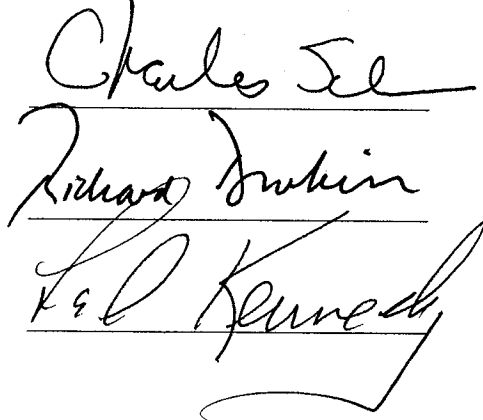 Charles Sch
Richard Durbin
Ted Kennedy